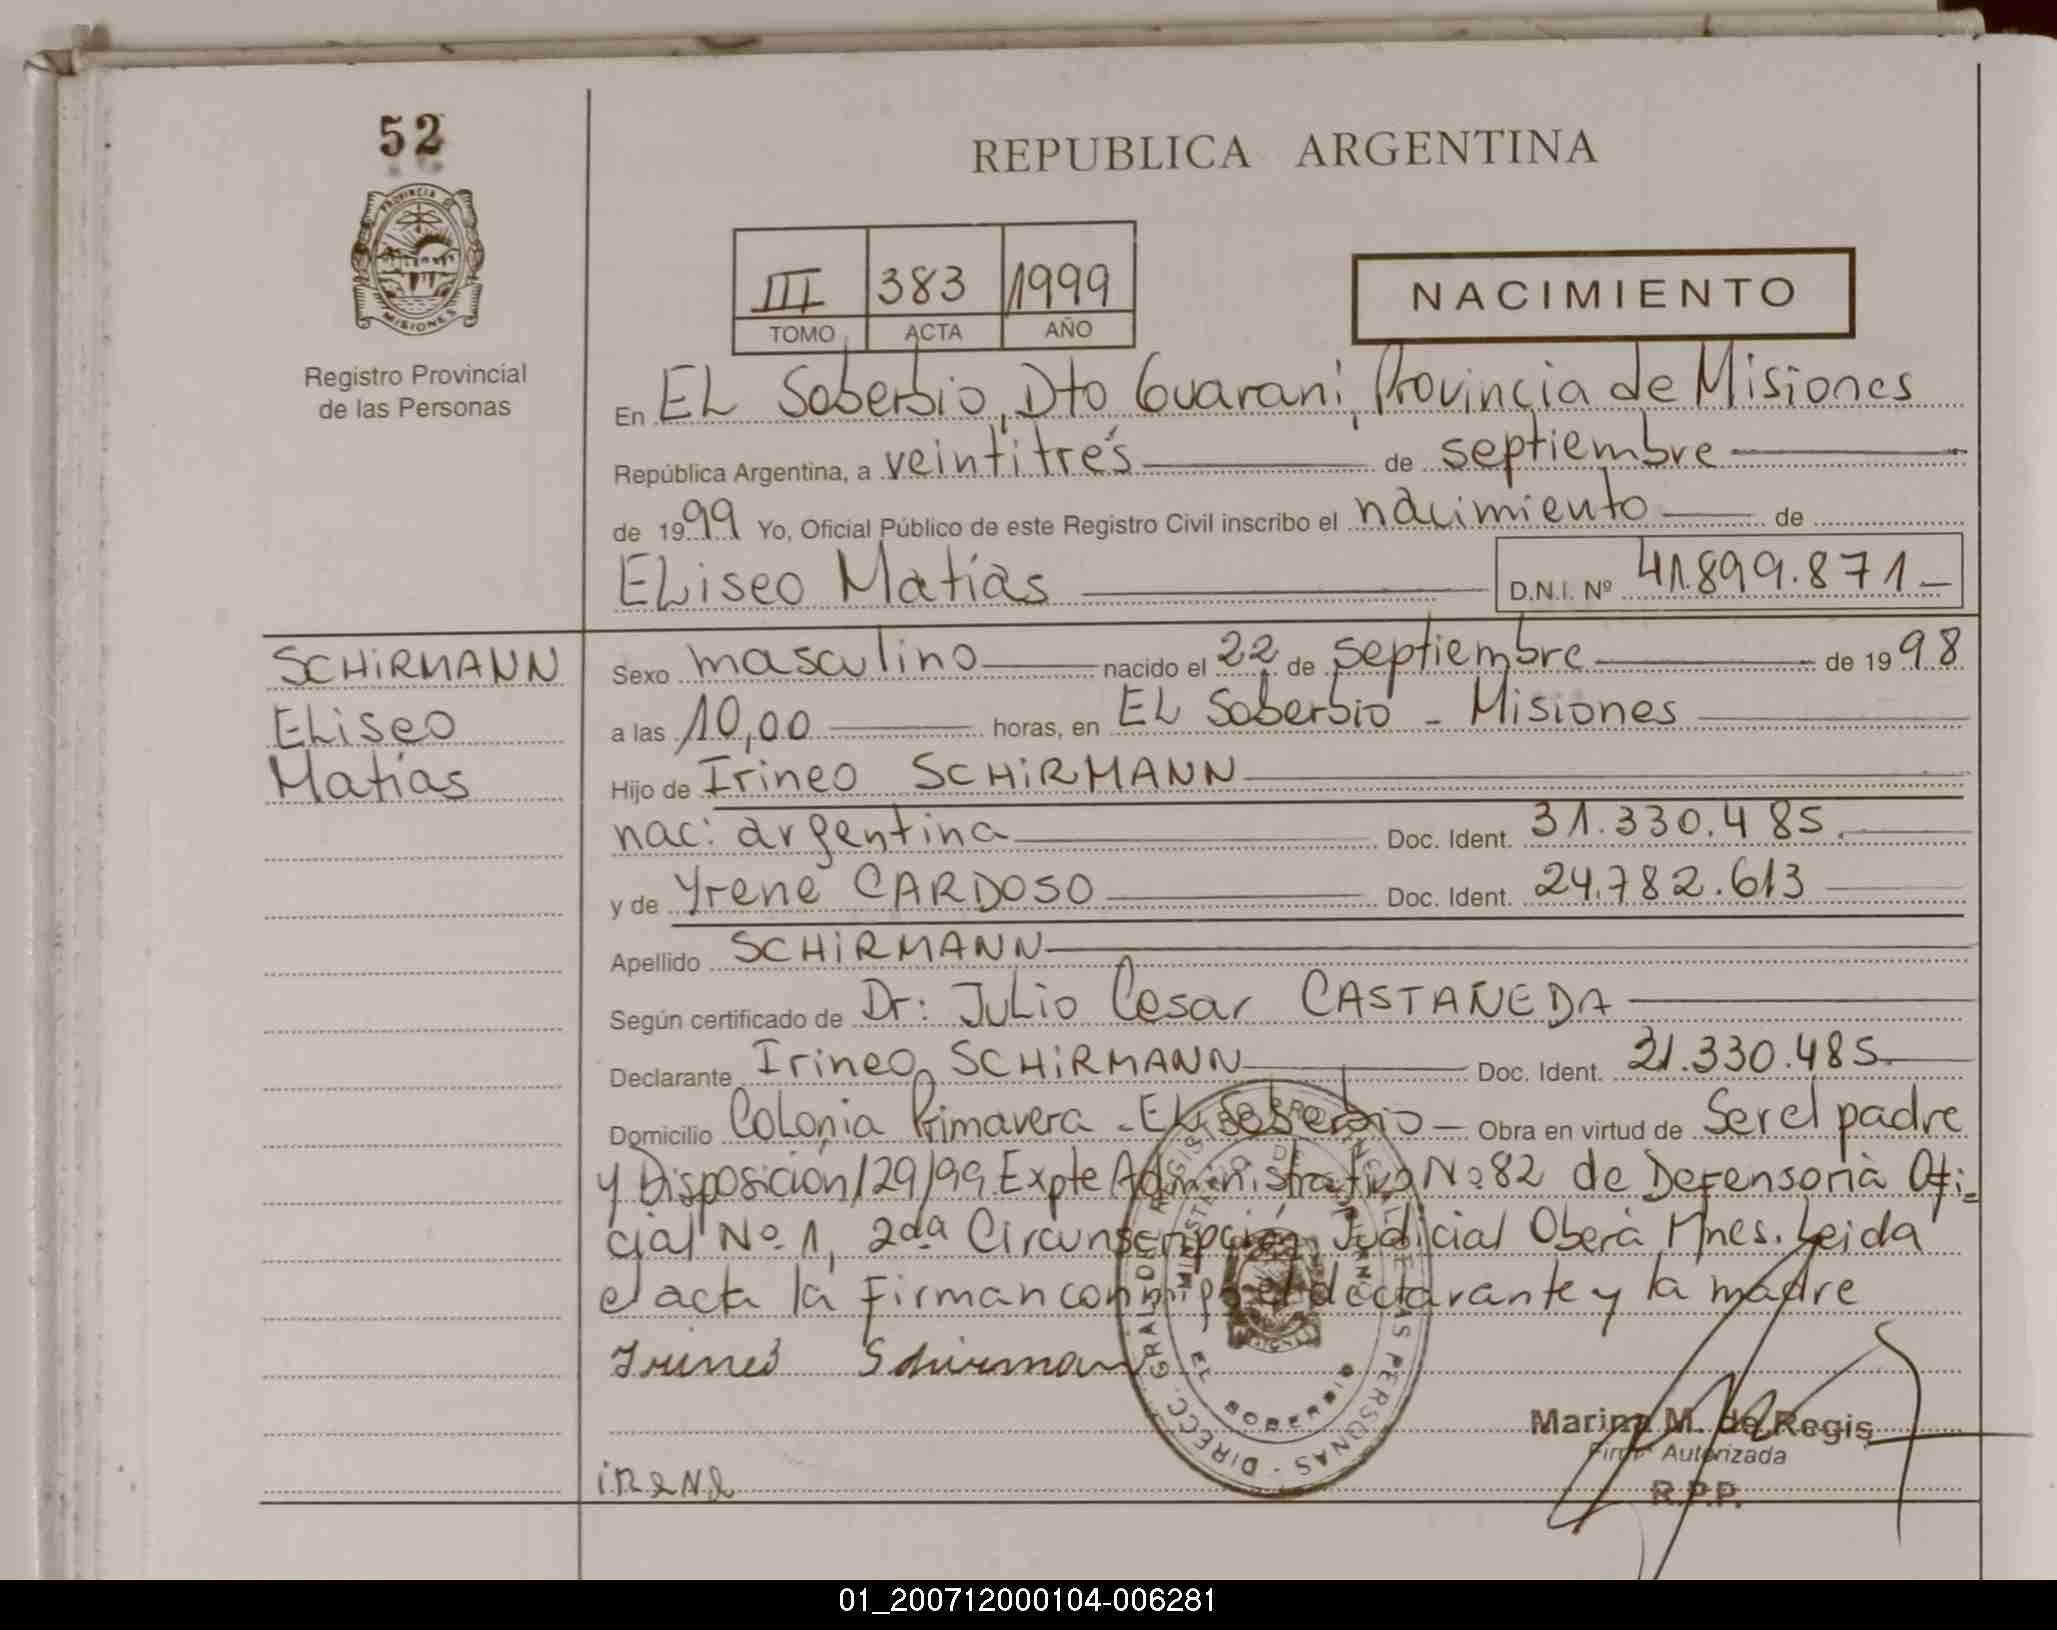 52
PROVINCIA DE
MISIONES
Registro Provincial
de las Personas
REPUBLICA ARGENTINA
III 383 1999
TOMO ACTA AÑO
NACIMIENTO
En EL Soberbio, Dto Guaraní, Provincia de Misiones
República Argentina, a veintitrés de septiembre
de 1999 Yo, Oficial Público de este Registro Civil inscribo el nacimiento de
ELiseo Matías D.N.I. Nº 41.899.871
SCHiRMANN
ELiseo
Matías
Sexo masculino nacido el 22 de septiembre de 1998
a las 10,00 horas, en EL Soberbio - Misiones
Hijo de Irineo SCHiRMANN
nac: argentina Doc. Ident. 31.330.485.
y de Yrene CARDOSO Doc. Ident. 24.782.613
Apellido SCHiRMANN
Según certificado de Dr: JuLio Cesar CASTAÑEDA
Declarante Irineo SCHiRMANN Doc. Ident. 31.330.485.
Domicilio CoLonia Primavera - EL Soberbio - Obra en virtud de Ser el padre
y Disposición 129/99 Expte Administrativo Nº 82 de Defensoría Ofi-
cial Nº 1, 2da Circunscripción Judicial Oberá Mnes. Leida
el acta la Firman conmigo el declarante y la madre
Irineo Schirman
iReNe
DIRECC. GRAL DE REGISTRO PROVINCIAL DE LAS PERSONAS
MINISTERIO DE
EL SOBERBIO
Marina M. de Regis
Firma Autorizada
R.P.P.
01_200712000104-006281